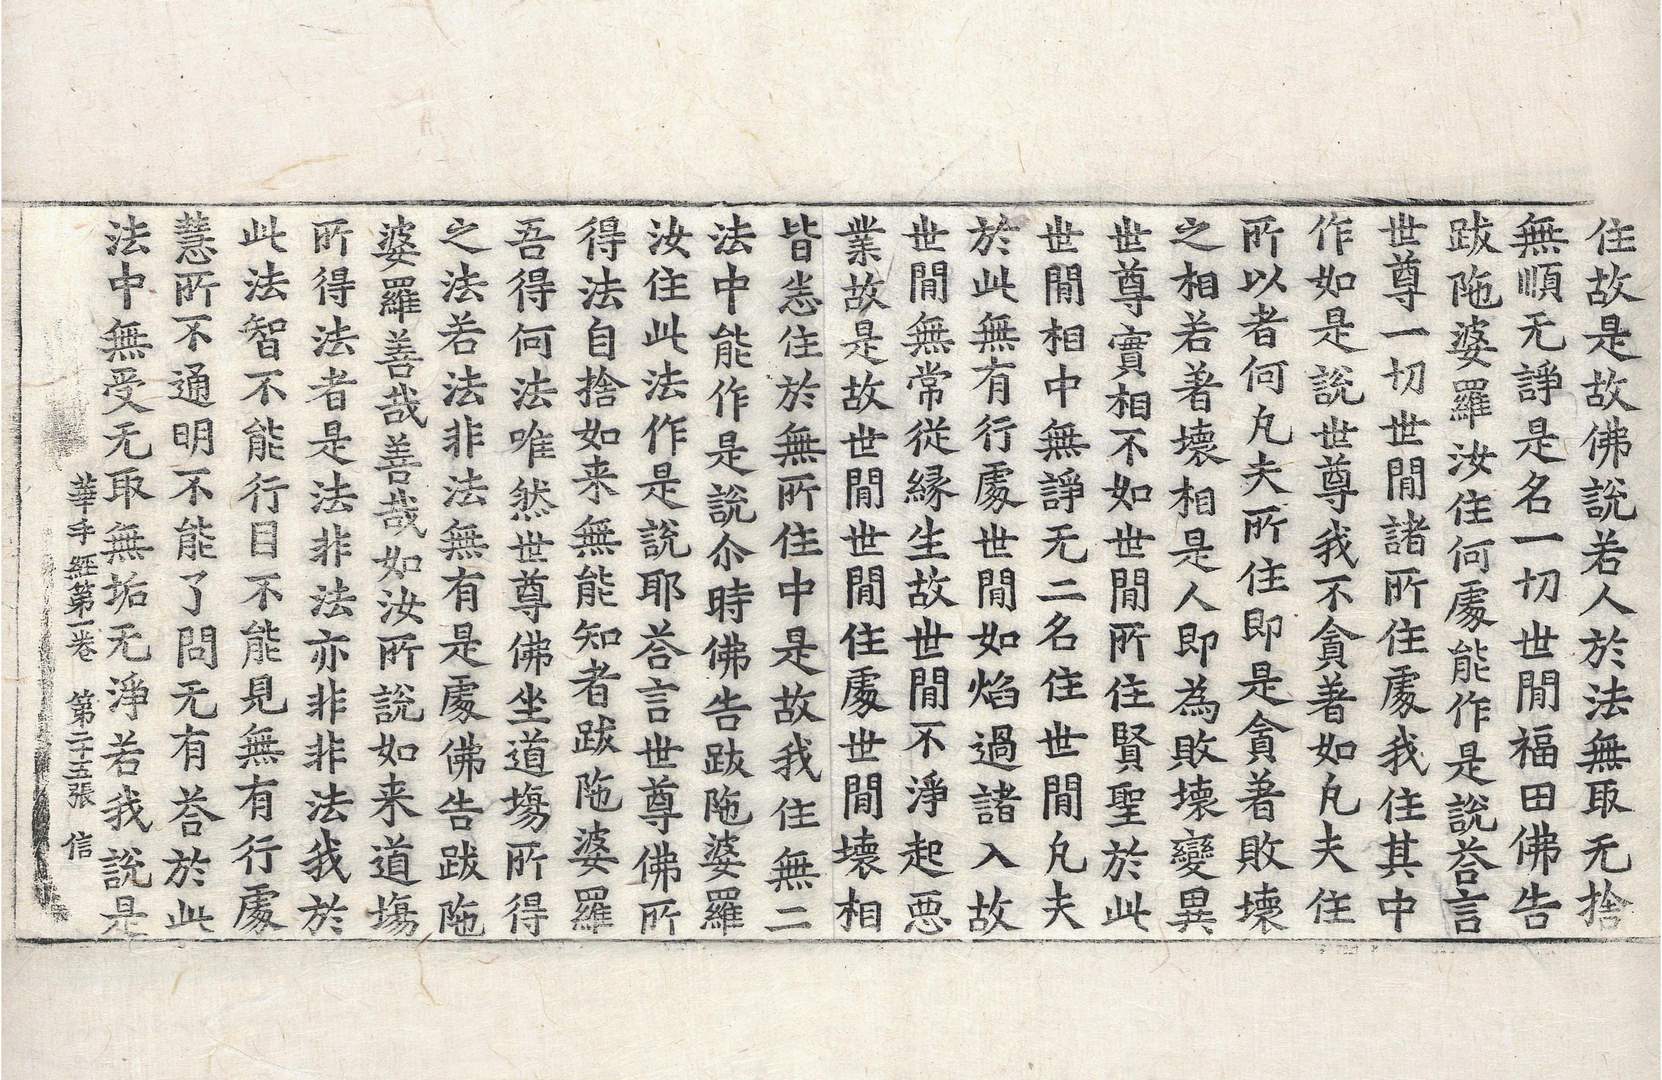 住故是故佛說若人於法無取无捨
無順无諍是名一切世閒福田佛告
跋陁婆羅汝住何處能作是說荅言
世尊一切世閒諸所住處我住其中
作如是說世尊我不貪著如凡夫住
所以者何凡夫所住即是貪著敗壞
之相若著壞相是人即為敗壞變異
世尊實相不如世閒所住賢聖於此
世閒相中無諍无二名住世閒凡夫
於此無有行處世閒如焰過諸入故
世閒無常從緣生故世閒不淨起惡
業故是故世閒世閒住處世閒壞相
皆悉住於無所住中是故我住無二
法中能作是說尒時佛告跋陁婆羅
汝住此法作是說耶荅言世尊佛所
得法自捨如来無能知者跋陁婆羅
吾得何法唯然世尊佛坐道場所得
之法若法非法無有是處佛告跋陁
婆羅善哉善哉如汝所說如来道場
所得法者是法非法亦非非法我於
此法智不能行目不能見無有行處
慧所不通明不能了問无有荅於此
法中無受无取無垢无淨若我說是
華手經第一卷　第二十五張　信